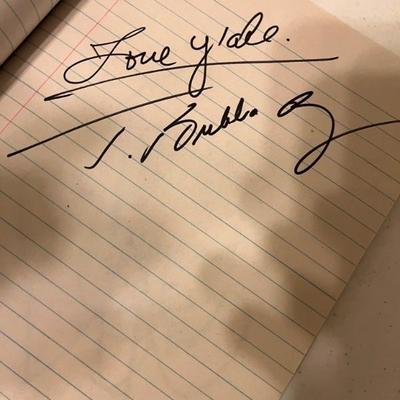 Love y'all.
J. Bubba